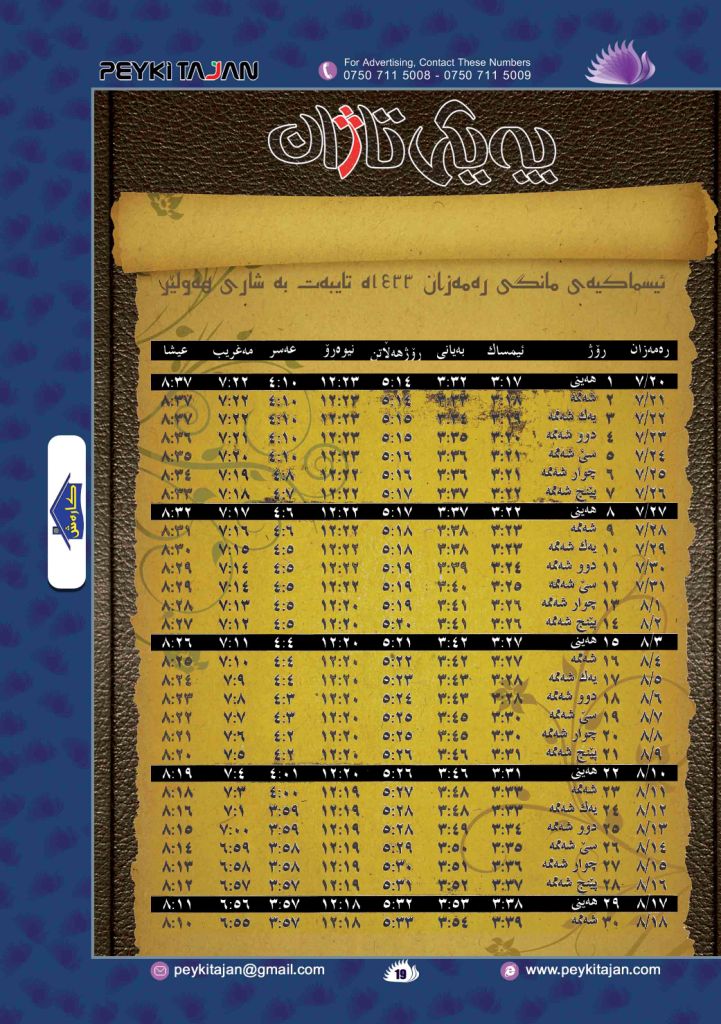 PEYKI TAJAN
For Advertising, Contact These Numbers
0750 711 5008 - 0750 711 5009
پەیکی تاژان
ئیمساکیەی مانگی رەمەزان ١٤٣٣ه تایبەت بە شاری هەولێر
رەمەزان رۆژ ئیمساك بەیانی رۆژهەڵاتن نیوەرۆ عەسر مەغریب عیشا
٧/٢٠ ١ هەینی ٣:١٧ ٣:٣٢ ٥:١٤ ١٢:٢٣ ٤:١٠ ٧:٢٢ ٨:٣٧
٧/٢١ ٢ شەممە ١٢:٢٣ ٤:١٠ ٧:٢٢ ٨:٣٧
٧/٢٢ ٣ یەك شەممە ٥:١٥ ١٢:٢٣ ٤:١٠ ٧:٢١ ٨:٣٧
٧/٢٣ ٤ دوو شەممە ٣:٢٠ ٣:٣٥ ٥:١٥ ١٢:٢٣ ٤:١٠ ٧:٢١
٧/٢٤ ٥ سێ شەممە ٣:٢١ ٣:٣٦ ٥:١٦ ١٢:٢٢ ٤:١٠ ٧:٢٠ ٨:٣٥
٧/٢٥ ٦ چوار شەممە ٣:٢١ ٣:٣٦ ٥:١٦ ١٢:٢٢ ٤:٨ ٧:١٩
٧/٢٦ ٧ پێنج شەممە ٣:٢٢ ٣:٣٧ ٥:١٧ ١٢:٢٢ ٤:٧ ٧:١٨
٧/٢٧ ٨ هەینی ٣:٢٢ ٣:٣٧ ٥:١٧ ١٢:٢٢ ٤:٦ ٧:١٧ ٨:٣٢
٧/٢٨ ٩ شەممە ٣:٢٣ ٣:٣٨ ٥:١٨ ١٢:٢٢ ٤:٦ ٧:١٦ ٨:٣١
٧/٢٩ ١٠ یەك شەممە ٣:٢٣ ٣:٣٨ ٥:١٨ ١٢:٢٢ ٤:٥ ٧:١٥ ٨:٣٠
٧/٣٠ ١١ دوو شەممە ٣:٢٤ ٣:٣٩ ٥:١٩ ٤:٥ ٧:١٤ ٨:٢٩
٧/٣١ ١٢ سێ شەممە ٣:٢٥ ٣:٤٠ ٥:١٩ ٤:٥ ٧:١٤ ٨:٢٩
٨/١ ١٣ چوار شەممە ٣:٢٦ ٣:٤١ ٥:١٩ ١٢:٢٠ ٤:٥ ٧:١٣ ٨:٢٨
٨/٢ ١٤ پێنج شەممە ٣:٢٦ ٣:٤١ ٥:٢٠ ١٢:٢٠ ٤:٥ ٧:١٢ ٨:٢٧
٨/٣ ١٥ هەینی ٣:٢٧ ٣:٤٢ ٥:٢١ ١٢:٢٠ ٤:٤ ٧:١١ ٨:٢٦
٨/٤ ١٦ شەممە ٣:٢٧ ٣:٤٢ ٥:٢٢ ١٢:٢٠ ٤:٤ ٧:١٠ ٨:٢٥
٨/٥ ١٧ یەك شەممە ٣:٢٨ ٣:٤٣ ٥:٢٣ ١٢:٢٠ ٤:٤ ٧:٩ ٨:٢٤
٨/٦ ١٨ دوو شەممە ٣:٤٣ ٥:٢٤ ١٢:٢٠ ٤:٣ ٧:٨ ٨:٢٣
٨/٧ ١٩ سێ شەممە ٣:٣٠ ٣:٤٥ ٥:٢٥ ١٢:٢٠ ٤:٣ ٧:٧ ٨:٢٢
٨/٨ ٢٠ چوار شەممە ٣:٣٠ ٣:٤٥ ٥:٢٥ ١٢:٢٠ ٤:٢ ٧:٦ ٨:٢١
٨/٩ ٢١ پێنج شەممە ٣:٣١ ٣:٤٦ ٥:٢٦ ١٢:٢٠ ٤:٢ ٧:٥ ٨:٢٠
٨/١٠ ٢٢ هەینی ٣:٣١ ٣:٤٦ ٥:٢٦ ١٢:٢٠ ٤:٠١ ٧:٤ ٨:١٩
٨/١١ ٢٣ شەممە ٣:٣٣ ٣:٤٨ ٥:٢٧ ١٢:١٩ ٤:٠٠ ٧:٣ ٨:١٨
٨/١٢ ٢٤ یەك شەممە ٣:٣٣ ٣:٤٨ ٥:٢٨ ١٢:١٩ ٣:٥٩ ٧:١ ٨:١٦
٨/١٣ ٢٥ دوو شەممە ٣:٣٤ ٣:٤٩ ٥:٢٨ ١٢:١٩ ٣:٥٩ ٧:٠٠ ٨:١٥
٨/١٤ ٢٦ سێ شەممە ٣:٣٥ ٣:٥٠ ٥:٢٩ ١٢:١٩ ٣:٥٨ ٦:٥٩ ٨:١٤
٨/١٥ ٢٧ چوار شەممە ٣:٣٦ ٣:٥١ ٥:٣٠ ١٢:١٩ ٣:٥٨ ٦:٥٨ ٨:١٣
٨/١٦ ٢٨ پێنج شەممە ٣:٣٧ ٣:٥٢ ٥:٣١ ١٢:١٩ ٣:٥٧ ٦:٥٧ ٨:١٢
٨/١٧ ٢٩ هەینی ٣:٣٨ ٣:٥٣ ٥:٣٢ ١٢:١٨ ٣:٥٧ ٦:٥٦ ٨:١١
٨/١٨ ٣٠ شەممە ٣:٣٩ ٣:٥٤ ٥:٣٣ ١٢:١٨ ٣:٥٧ ٦:٥٥ ٨:١٠
peykitajan@gmail.com
19
www.peykitajan.com